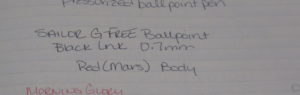 Pressurized ballpoint pen
SAILOR G-FREE Ballpoint
Black Ink 0.7mm
Red (Mars) Body
MORNING GLORY